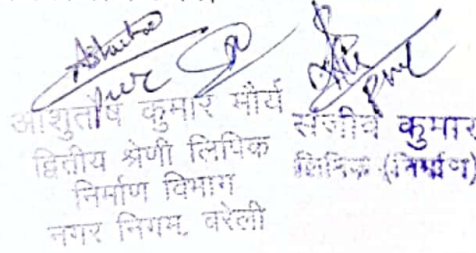 आशुतोष कुमार मौर्य
द्वितीय श्रेणी लिपिक
निर्माण विभाग
नगर निगम, बरेली
संजीव कुमार
लिपिक (निर्माण)